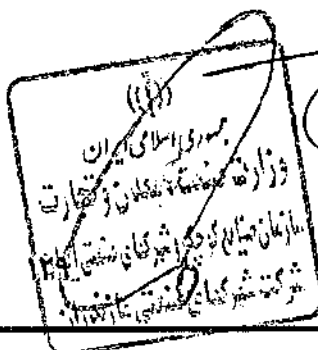 جمهوری اسلامی ایران
وزارت صنعت معدن و تجارت
سازمان صنایع کوچک و شهرکهای صنعتی ایران
شرکت شهرکهای صنعتی مازندران